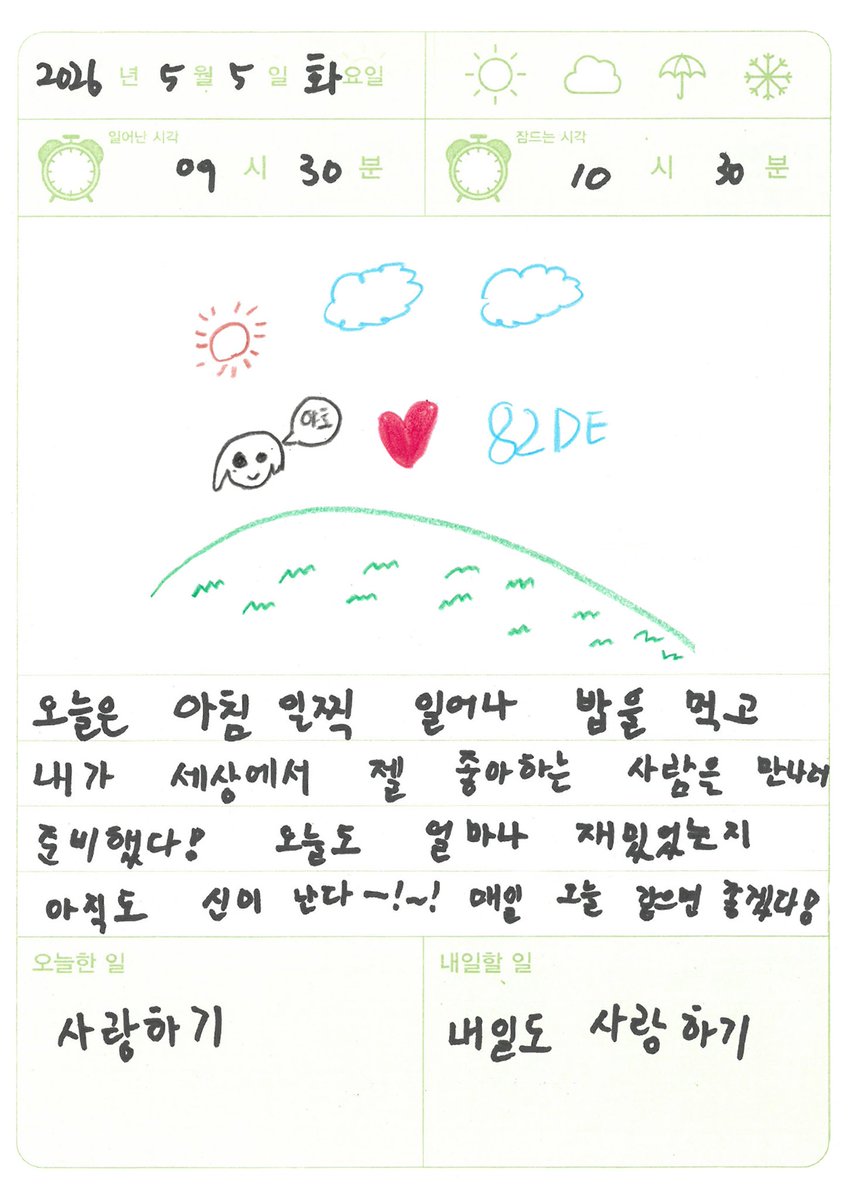 2026 년 5 월 5 일 화요일
일어난 시각
09 시 30 분
잠드는 시각
10 시 30 분
82DE
오늘은 아침 일찍 일어나 밥을 먹고
내가 세상에서 젤 좋아하는 사람을 만나러
준비했다! 오늘도 얼마나 재밌었는지
아직도 신이 난다~!~! 매일 오늘 같으면 좋겠다!
오늘한 일
사랑하기
내일할 일
내일도 사랑하기